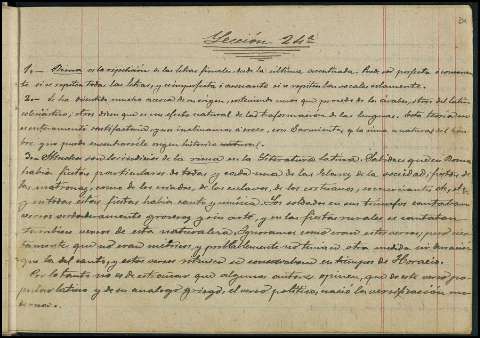 Lección 24ª
1.- Rima es la repetición de las letras finales desde la última acentuada. Puede ser perfecta o consonante
si se repiten todas las letras, y e imperfecta o asonante si se repiten las vocales solamente.
2.- Se ha discutido mucho acerca de su origen, sosteniendo unos que procede de los árabes, otros del latín
eclesiástico, otros dicen que es un efecto natural de la trasformación de las lenguas. Esta teoría es
enteramente satisfactoria, y nos inclinamos a creer, con Sarmiento, q. la rima es natural del hombre
que puede encontrarsele origen histórico
3.- Muchos son los indicios de la rima en la literatura latina. Sabido es que en Roma
había fiestas particulares de todas y cada una de las clases de la sociedad, fiestas de
las matronas, como de los criados, de los esclavos, de los artesanos, comerciantes etc, etc,
y en todas estas fiestas había canto y música. Los soldados en sus triunfos cantaban
versos verdaderamente groseros y sin arte, y en las fiestas rurales se cantaban
tambien versos de esta naturaleza. Ignoramos como eran estos versos, pero
que no eran métricos, y probablemente no tenían otra medida ni duración
que la del canto, y estos versos se conservaban en tiempos de Horacio.
Por lo tanto no es de estrañar que algunos autores opinen, que de este verso popular
latino y de su analogo griego, el verso político, nació la versificación moderna.